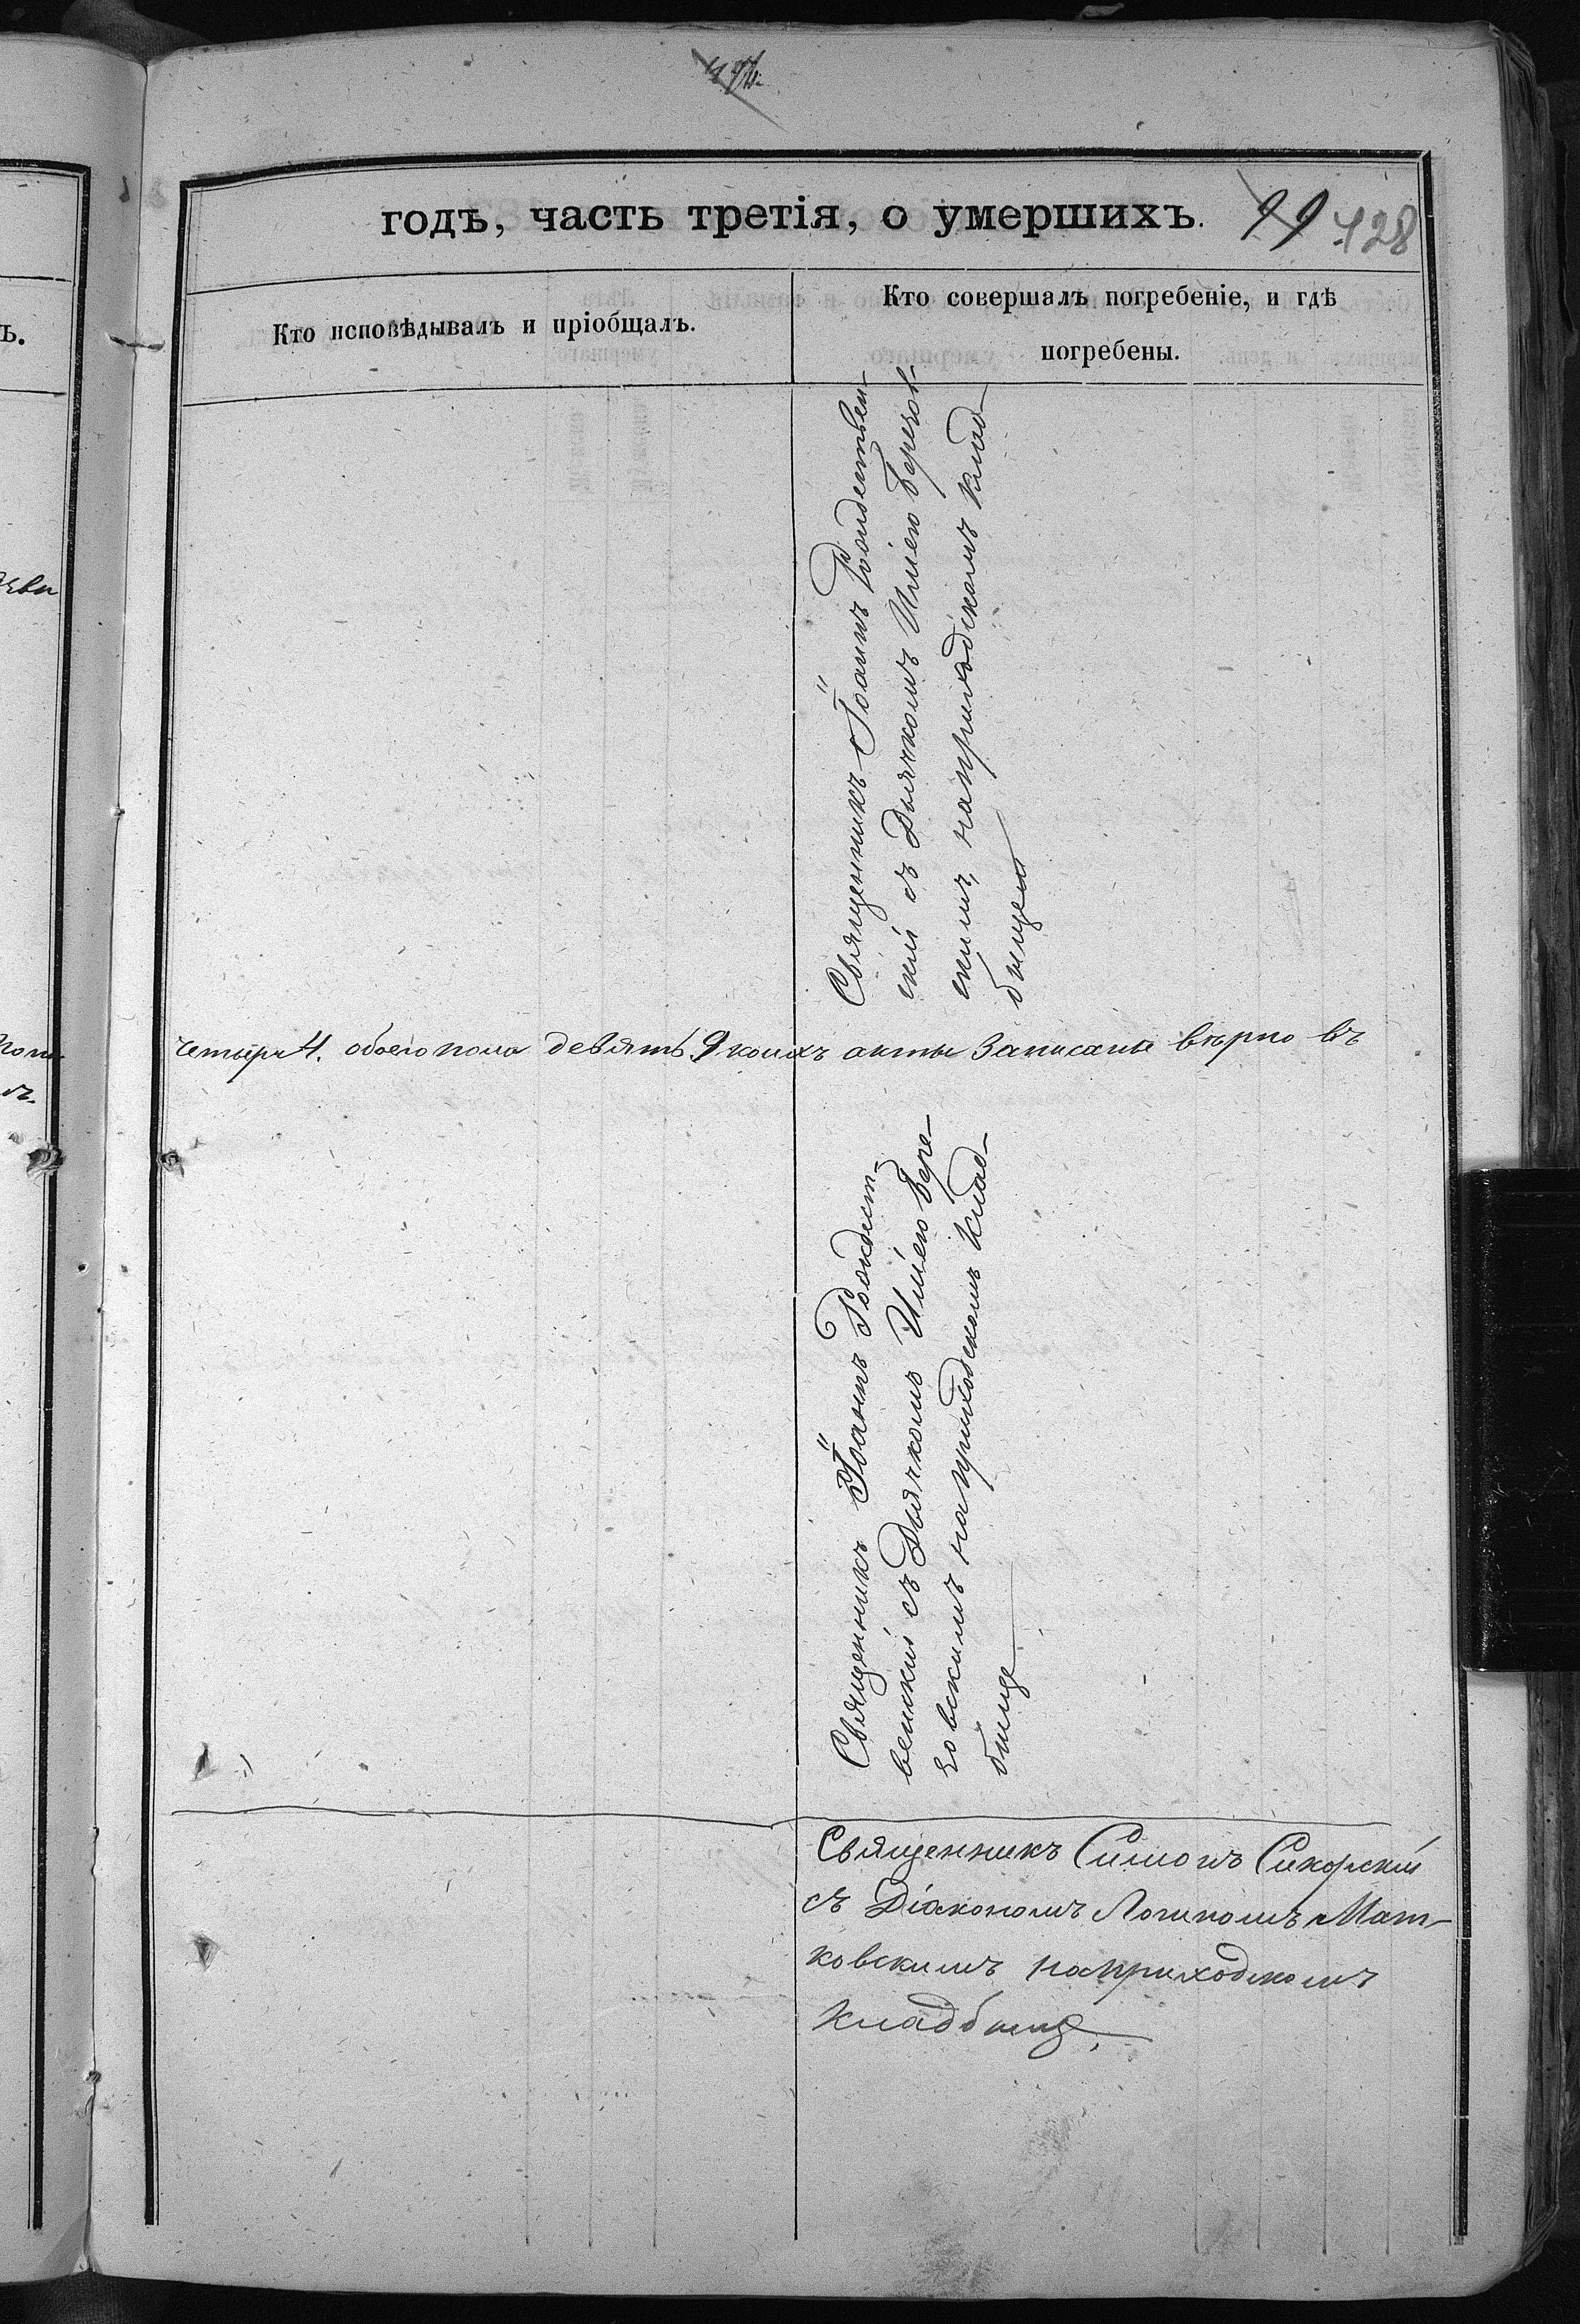 годъ, часть третія, о умершихъ.
99
128
Кто исповѣдывалъ и пріобщалъ.
Кто совершалъ погребеніе, и гдѣ
погребены.
Священникъ Іоаннъ Рождествен-
скій съ Дьячкомъ Иліею Березов-
скимъ, на приходскомъ клад-
бищѣ
четыре 4. обоего пола девять 9 коихъ акты записаны вѣрно въ
Священникъ Іоаннъ Рождест-
венскій съ Дьячкомъ Иліею Бере-
зовскимъ на приходскомъ клад-
бище
Священникъ Симонъ Сикорскій
съ Діакономъ Логиномъ Мат-
ковскимъ на приходскомъ
кладбище